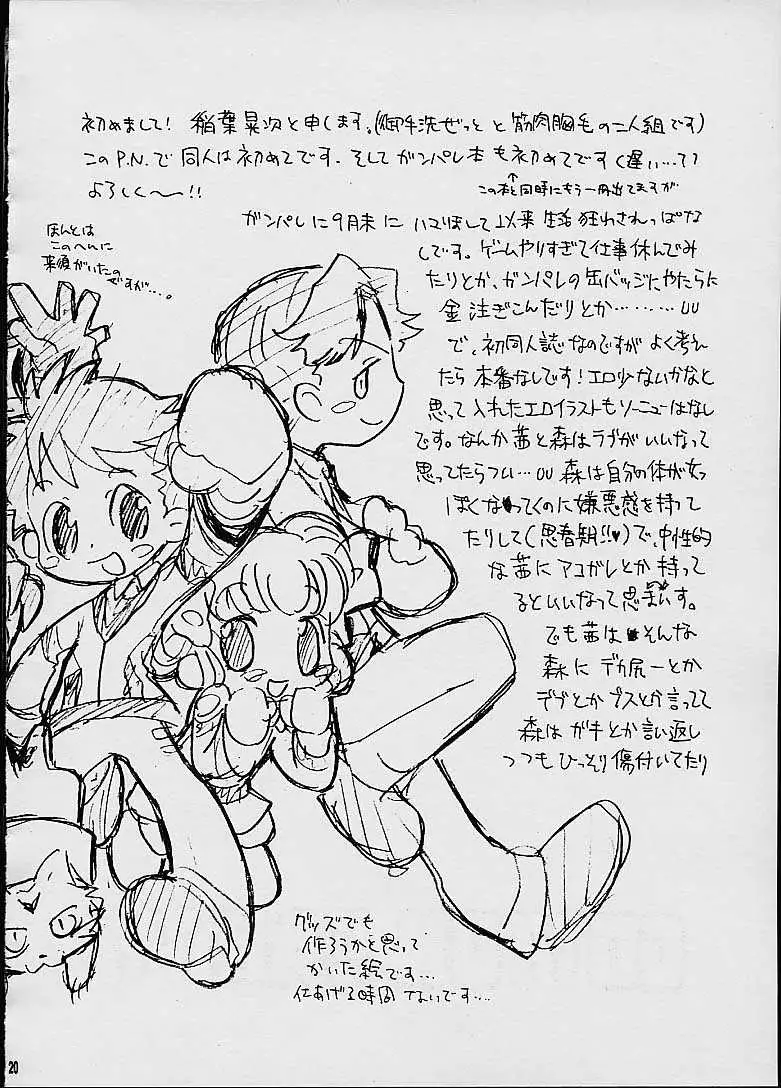 初めまして! 稲葉晃次と申します。(御手洗ぜっと と 筋肉胸毛の二人組です)
このP.N.で同人は初めてです。そしてガンパレ本も初めてです(遅い…??
この本と同時にもう一冊出てますが
よろしく〜!!
ガンパレに9月末に ハマりまして以来 生活狂わされっぱな
しです。ゲームやりすぎて仕事休んでみ
たりとか、ガンパレの缶バッジにやたらに
金注ぎこんだりとか………UU
で、初同人誌なのですが よく考え
たら 本番なしです!エロ少ないかなと
思って入れたエロイラストもソーニューはなし
です。なんか茜と森はラブがいいなって
思ってたらつい…UU 森は自分の体が女っ
ぽくなってくのに嫌悪感を持って
たりして(思春期!!♥)で、中性的
な茜にアコガレとか持って
るといいなって思います。
でも茜はそんな
森に デカ尻ーとか
デブとかブスとか言ってて
森は ガキとか言い返し
つつも ひっそり傷付いてたり
ほんとは
このへんに
来須がいたの
ですが…。
グッズでも
作ろうかと思って
かいた絵です…
仕あげる時間 ないです…
20